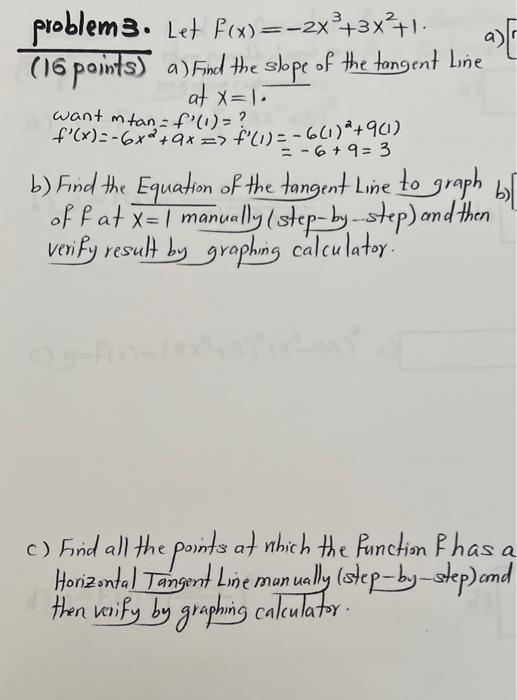 problem 3. Let f(x)=-2x³+3x²+1. a)
(16 points) a) Find the slope of the tangent Line
at x=1.
want mtan = f'(1) = ?
f'(x)=-6x²+9x => f'(1) = -6(1)²+9(1)
= -6+9=3
b) Find the Equation of the tangent Line to graph b)
of f at x=1 manually (step-by-step) and then
verify result by graphing calculator.
c) Find all the points at which the function f has a
Horizontal Tangent Line manually (step-by-step) and
then verify by graphing calculator.